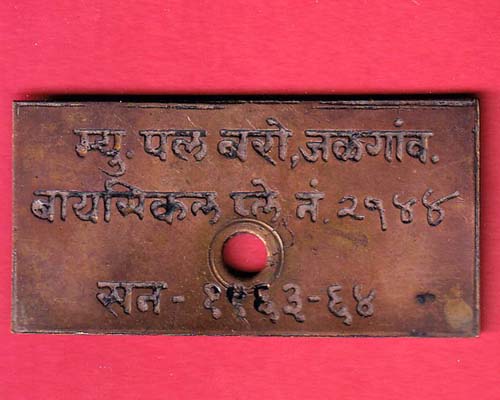 म्यु. पल बरो,जळगांव.
बायसिकल प्ले. नं. २१४४
सन - १९६३-६४